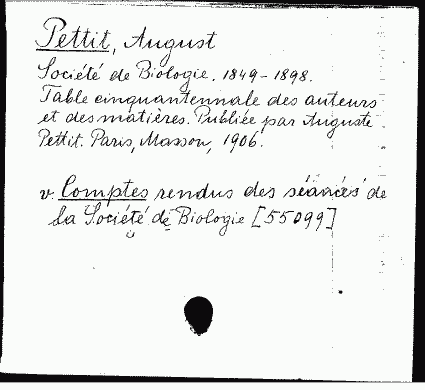 Pettit, August
Société de Biologie. 1849-1898.
Table cinquantennale des auteurs
et des matières. Publiée par Auguste
Pettit. Paris, Masson, 1906.
v. Comptes rendus des séances de
la Société de Biologie [55099]